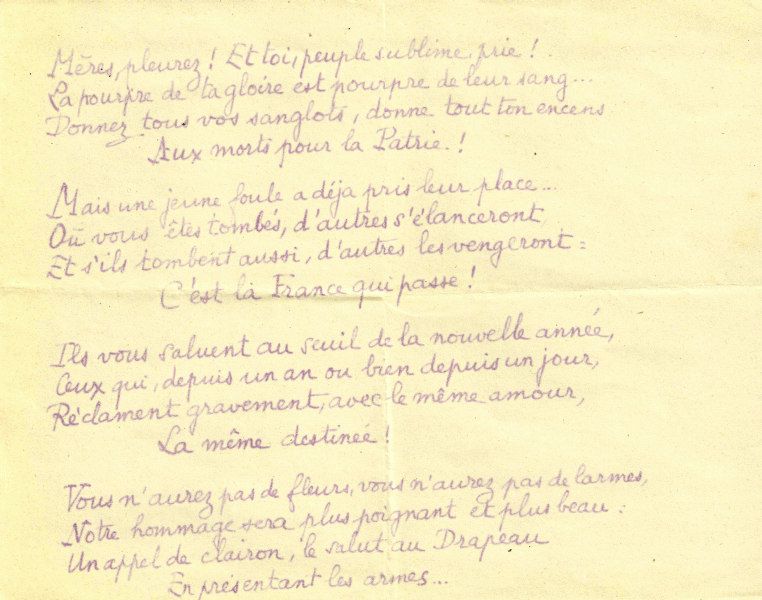 Mères, pleurez! Et toi, peuple sublime, prie!
La pourpre de ta gloire est pourpre de leur sang...
Donnez tous vos sanglots, donne tout ton encens
Aux morts pour la Patrie.!
Mais une jeune foule a déja pris leur place...
Où vous êtes tombés, d'autres s'élanceront,
Et s'ils tombent aussi, d'autres les vengeront:
C'est la France qui passe!
Ils vous saluent au seuil de la nouvelle année,
Ceux qui, depuis un an ou bien depuis un jour,
Réclament gravement, avec le même amour,
La même destinée!
Vous n'aurez pas de fleurs, vous n'aurez pas de larmes,
Notre hommage sera plus poignant et plus beau:
Un appel de clairon, le salut au Drapeau
En présentant les armes...